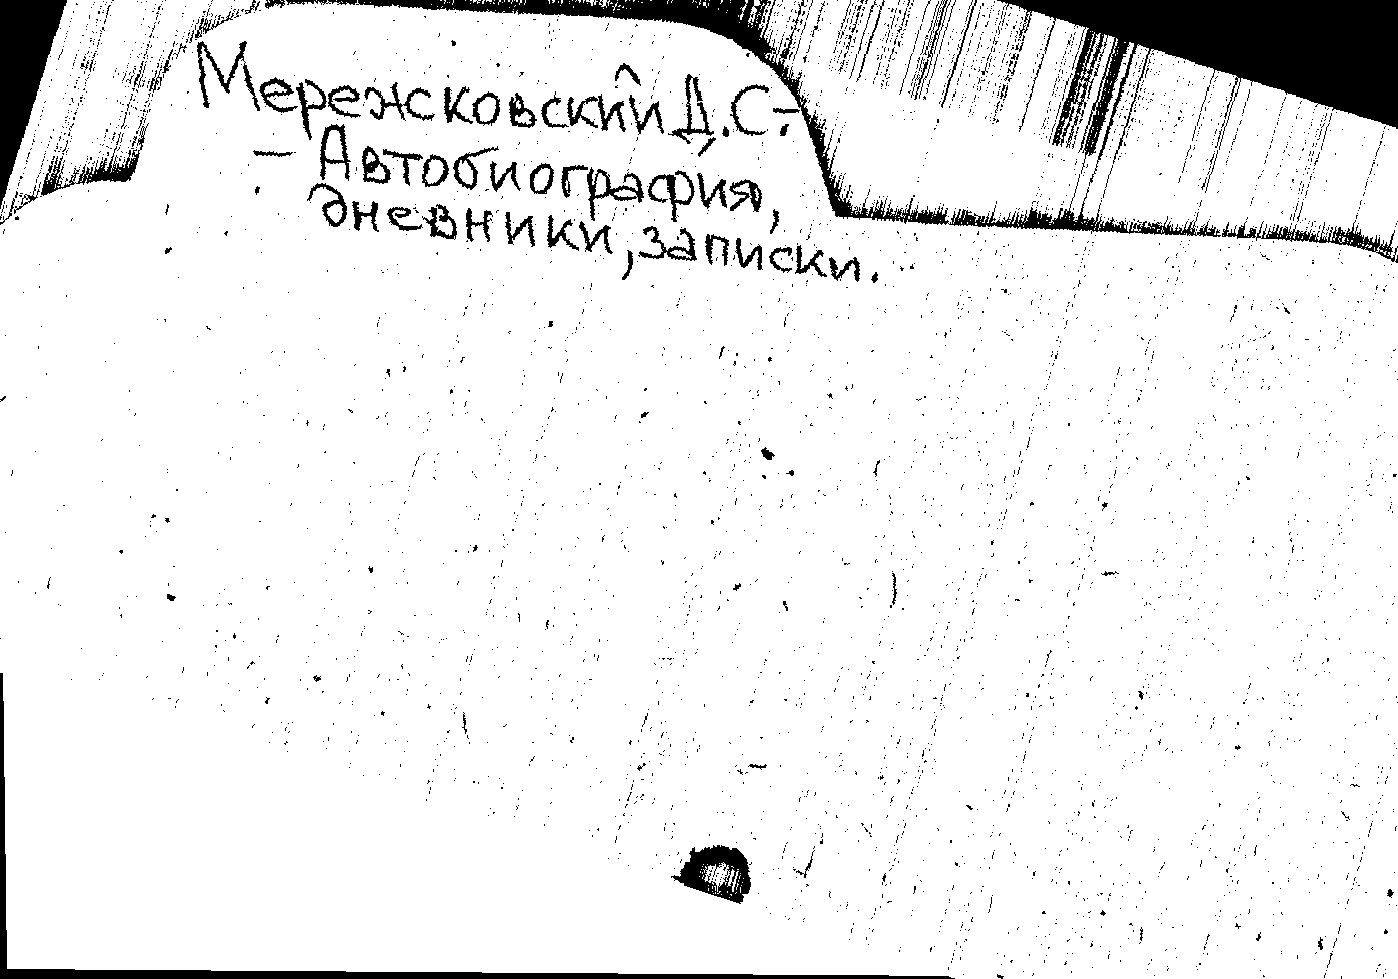 Мережсковский Д.С.-
- Автобиография,
дневники, записки.